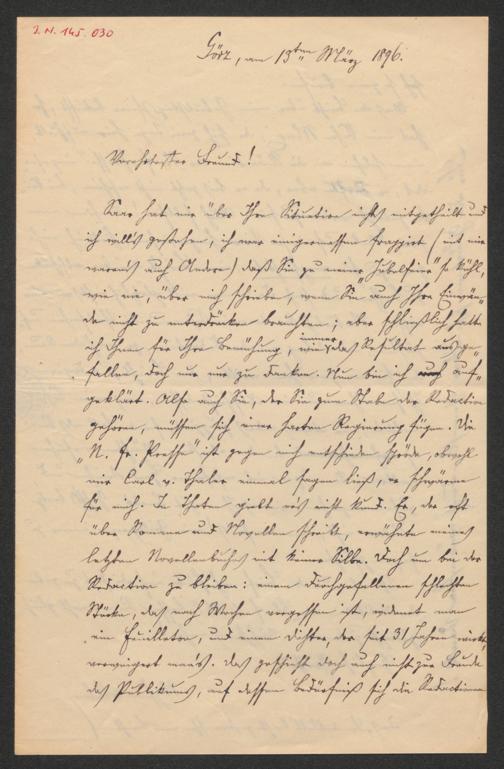 I. N. 145.030
Görz, am 13ten März 1896.
Verehrtester Freund!
Saar hat mir über Ihre Situation nichts mitgetheilt und
ich will's gestehen, ich war einigermassen frappirt (mit mir
waren's auch Andere) daß Sie zu meiner "Jubelfeier" so kühl,
wie nie, über mich schrieben, wenn Sie auch Ihre Einwän-
de nicht zu unterdrücken brauchten; aber schließlich hatte
ich Ihnen für Ihre Bemühung, wie immer das Resultat ausge-
fallen, doch nur zu danken. Nun bin ich auf-
geklärt. Also auch Sie, der Sie zum Stabe der Redaction
gehören, müssen sich einer harten Regierung fügen. Die
"N. fr. Presse" ist gegen mich entschieden spröde, obwohl
mir Carl v. Thaler einmal sagen ließ, er schwärme
für mich. In Thaten giebt er's nicht kund. Er, der oft
über Romane und Novellen schreibt, erwähnte meines
letzten Novellenbuches mit keiner Silbe. Doch um bei der
Redaction zu bleiben: einem durchgefallenen schlechten
Stücke, das nach Wochen vergessen ist, widmet man
ein Feuilleton, und einem Dichter, der seit 31 Jahren wirkt,
verweigert man's. Das geschieht doch auch nicht zur Freude
des Publikums, auf dessen Bedürfniß sich die Redactionen